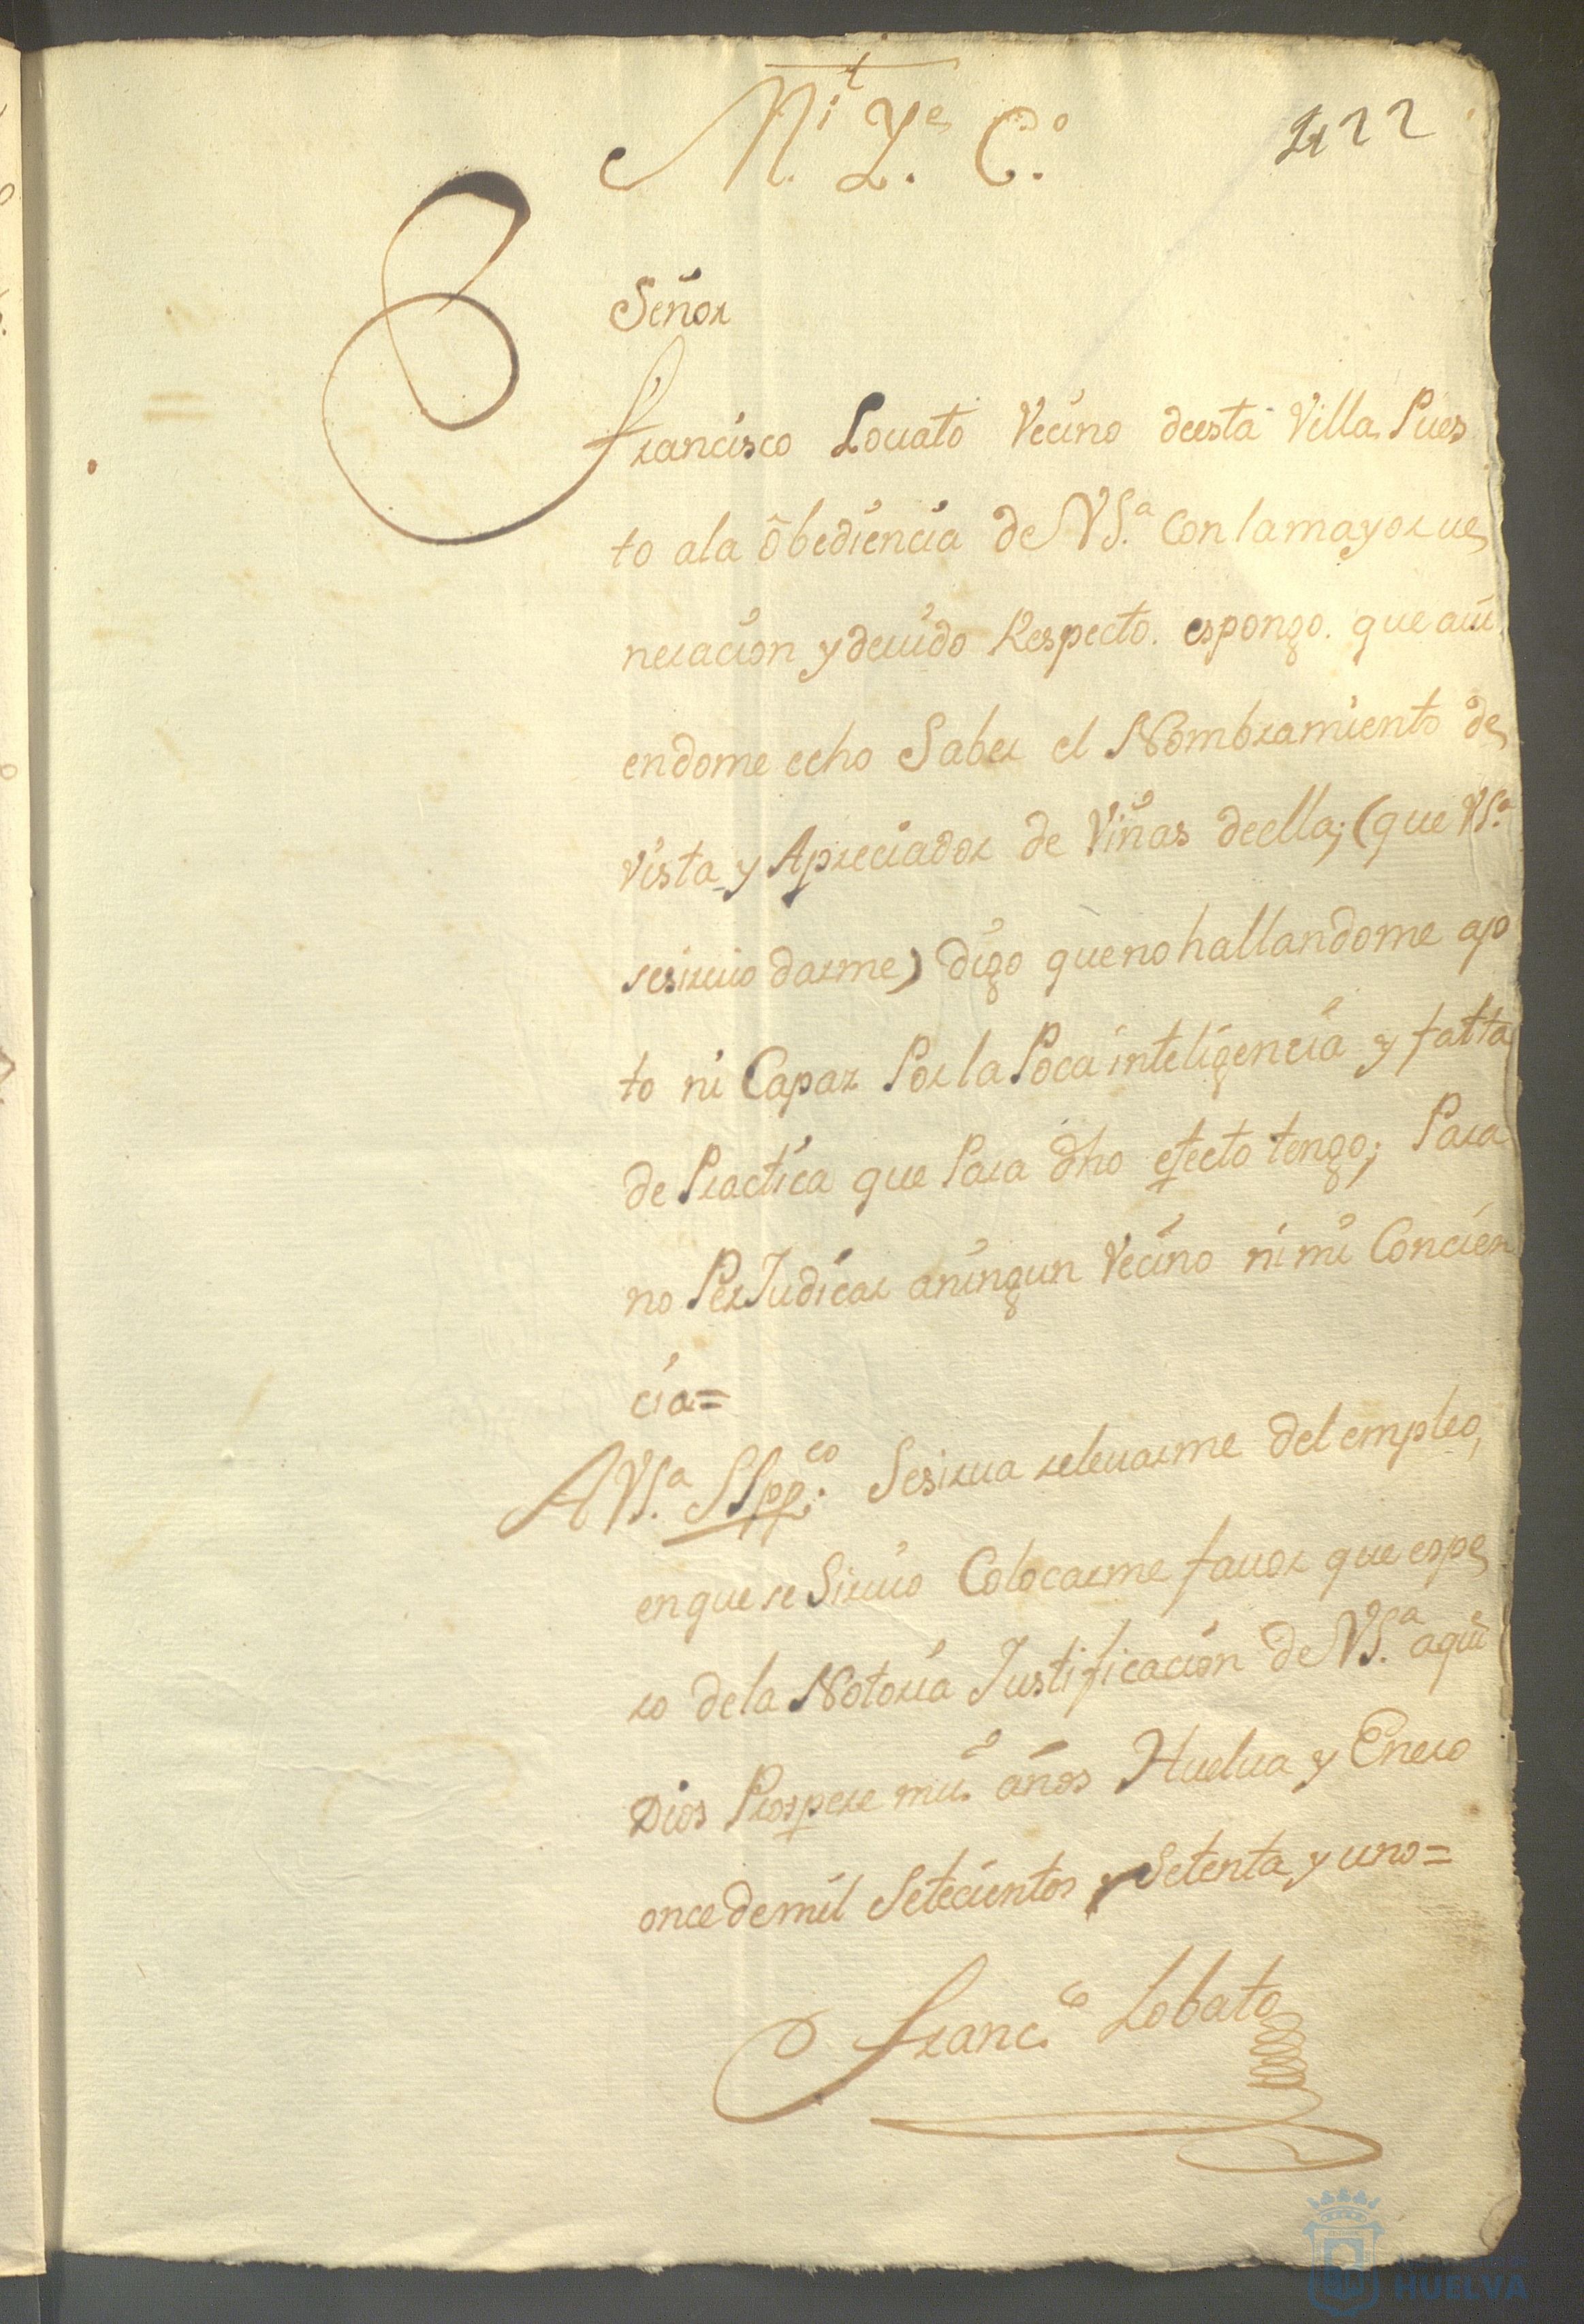 M.i Y.e C.o
422
Señor
Francisco Louato Vecino deesta Villa Pues
to ala obediencia de VS.a Con lamayor ue
neracion y deuido Respecto. espongo. que aui
endome echo Saber el Nombramiento de
Vista y Apreciador de Viñas deella; (que VS.a
sesiruio darme) digo queno hallandome ap
to ni Capaz Por la Poca inteligencia y falta
de Practica que Para dho efecto tengo; Para
no PerJudicar aningun Vecino ni mi Concien
cia=
A VS.a SSpp.co Sesirua releuarme del empleo,
enque se Siruio Colocarme fauor que espe
ro dela Notoria Justificacion de VS.a aqui
Dios Prospere mu.s años Huelua y Enero
once demil Setecientos y Setenta y uno=
Franc.co Lobato
HUELVA